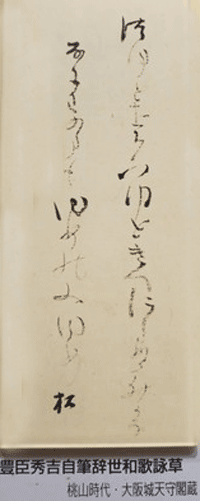 つゆとをちつゆときへにしわかみかな
なにわの事もゆめの又ゆめ
松
豊臣秀吉自筆辞世和歌詠草
桃山時代・大阪城天守閣蔵